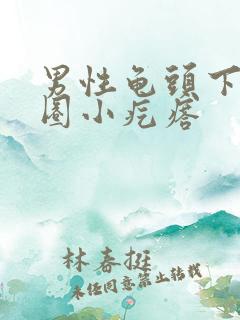 男性龟頭下
圈小疙瘩
林春挺
未经同意禁止转载